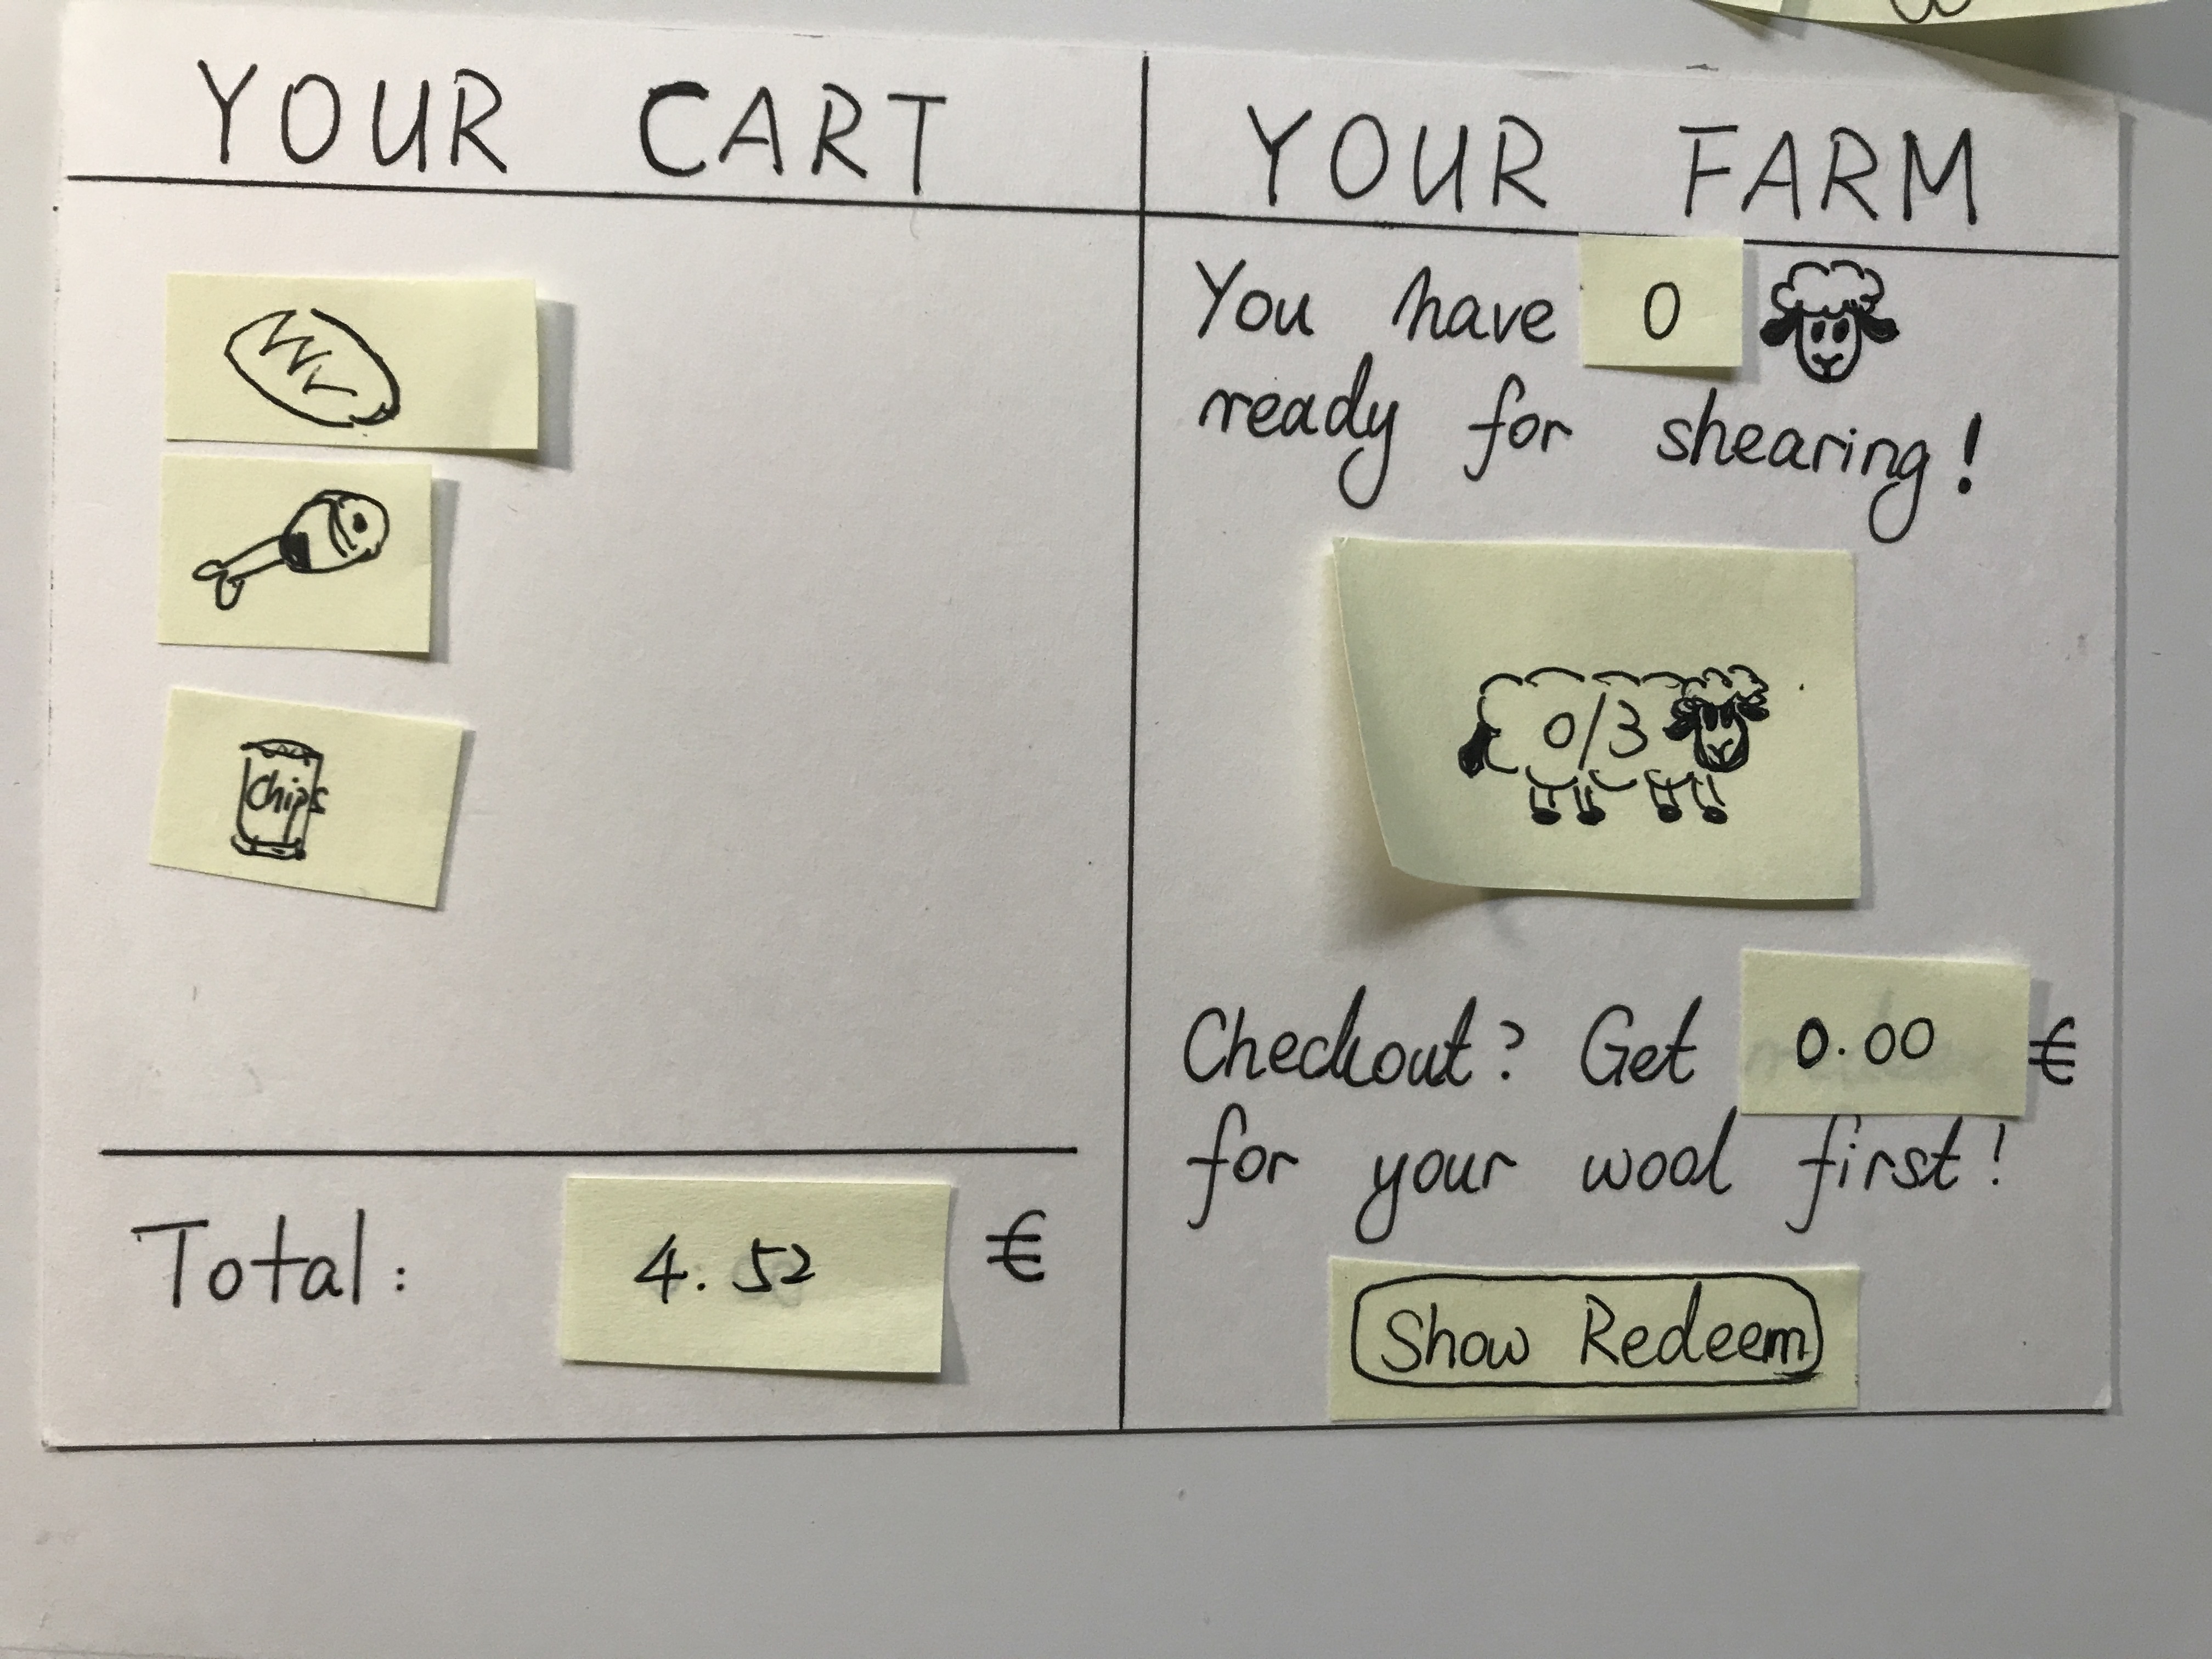 YOUR CART
Chips
Total: 4.52 €
YOUR FARM
You have 0
ready for shearing!
0/3
Checkout? Get 0.00 €
for your wool first!
Show Redeem